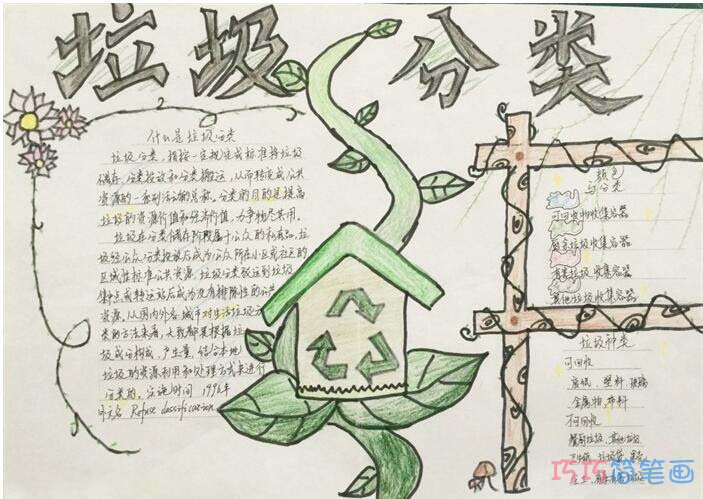 垃圾分类
什么是垃圾分类
垃圾分类，指按一定规定或标准将垃圾
储存、分类投放和分类搬运，从而转变成公共
资源的一系列活动的总称。分类的目的是提高
垃圾的资源价值和经济价值，力争物尽其用。
垃圾在分类储存阶段属于公众的私有品，垃
圾经公众分类投放后成为公众所在小区或社区的
区域性准公共资源，垃圾分类搬运到垃圾
集中点或转运站后成为没有排除性的公共
资源。从国内外各城市对生活垃圾分
类的方法来看，大致都是根据垃
圾成分构成、产生量，结合本地
垃圾的资源利用和处理方式来进行
分类的。实施时间 1996年
外文名 Refuse classification
颜色
与分类
可回收物收集容器
厨余垃圾收集容器
有害垃圾收集容器
其他垃圾收集容器
垃圾种类
可回收
废纸、塑料、玻璃
金属物、布料
不可回收
其他垃圾
巧巧简笔画